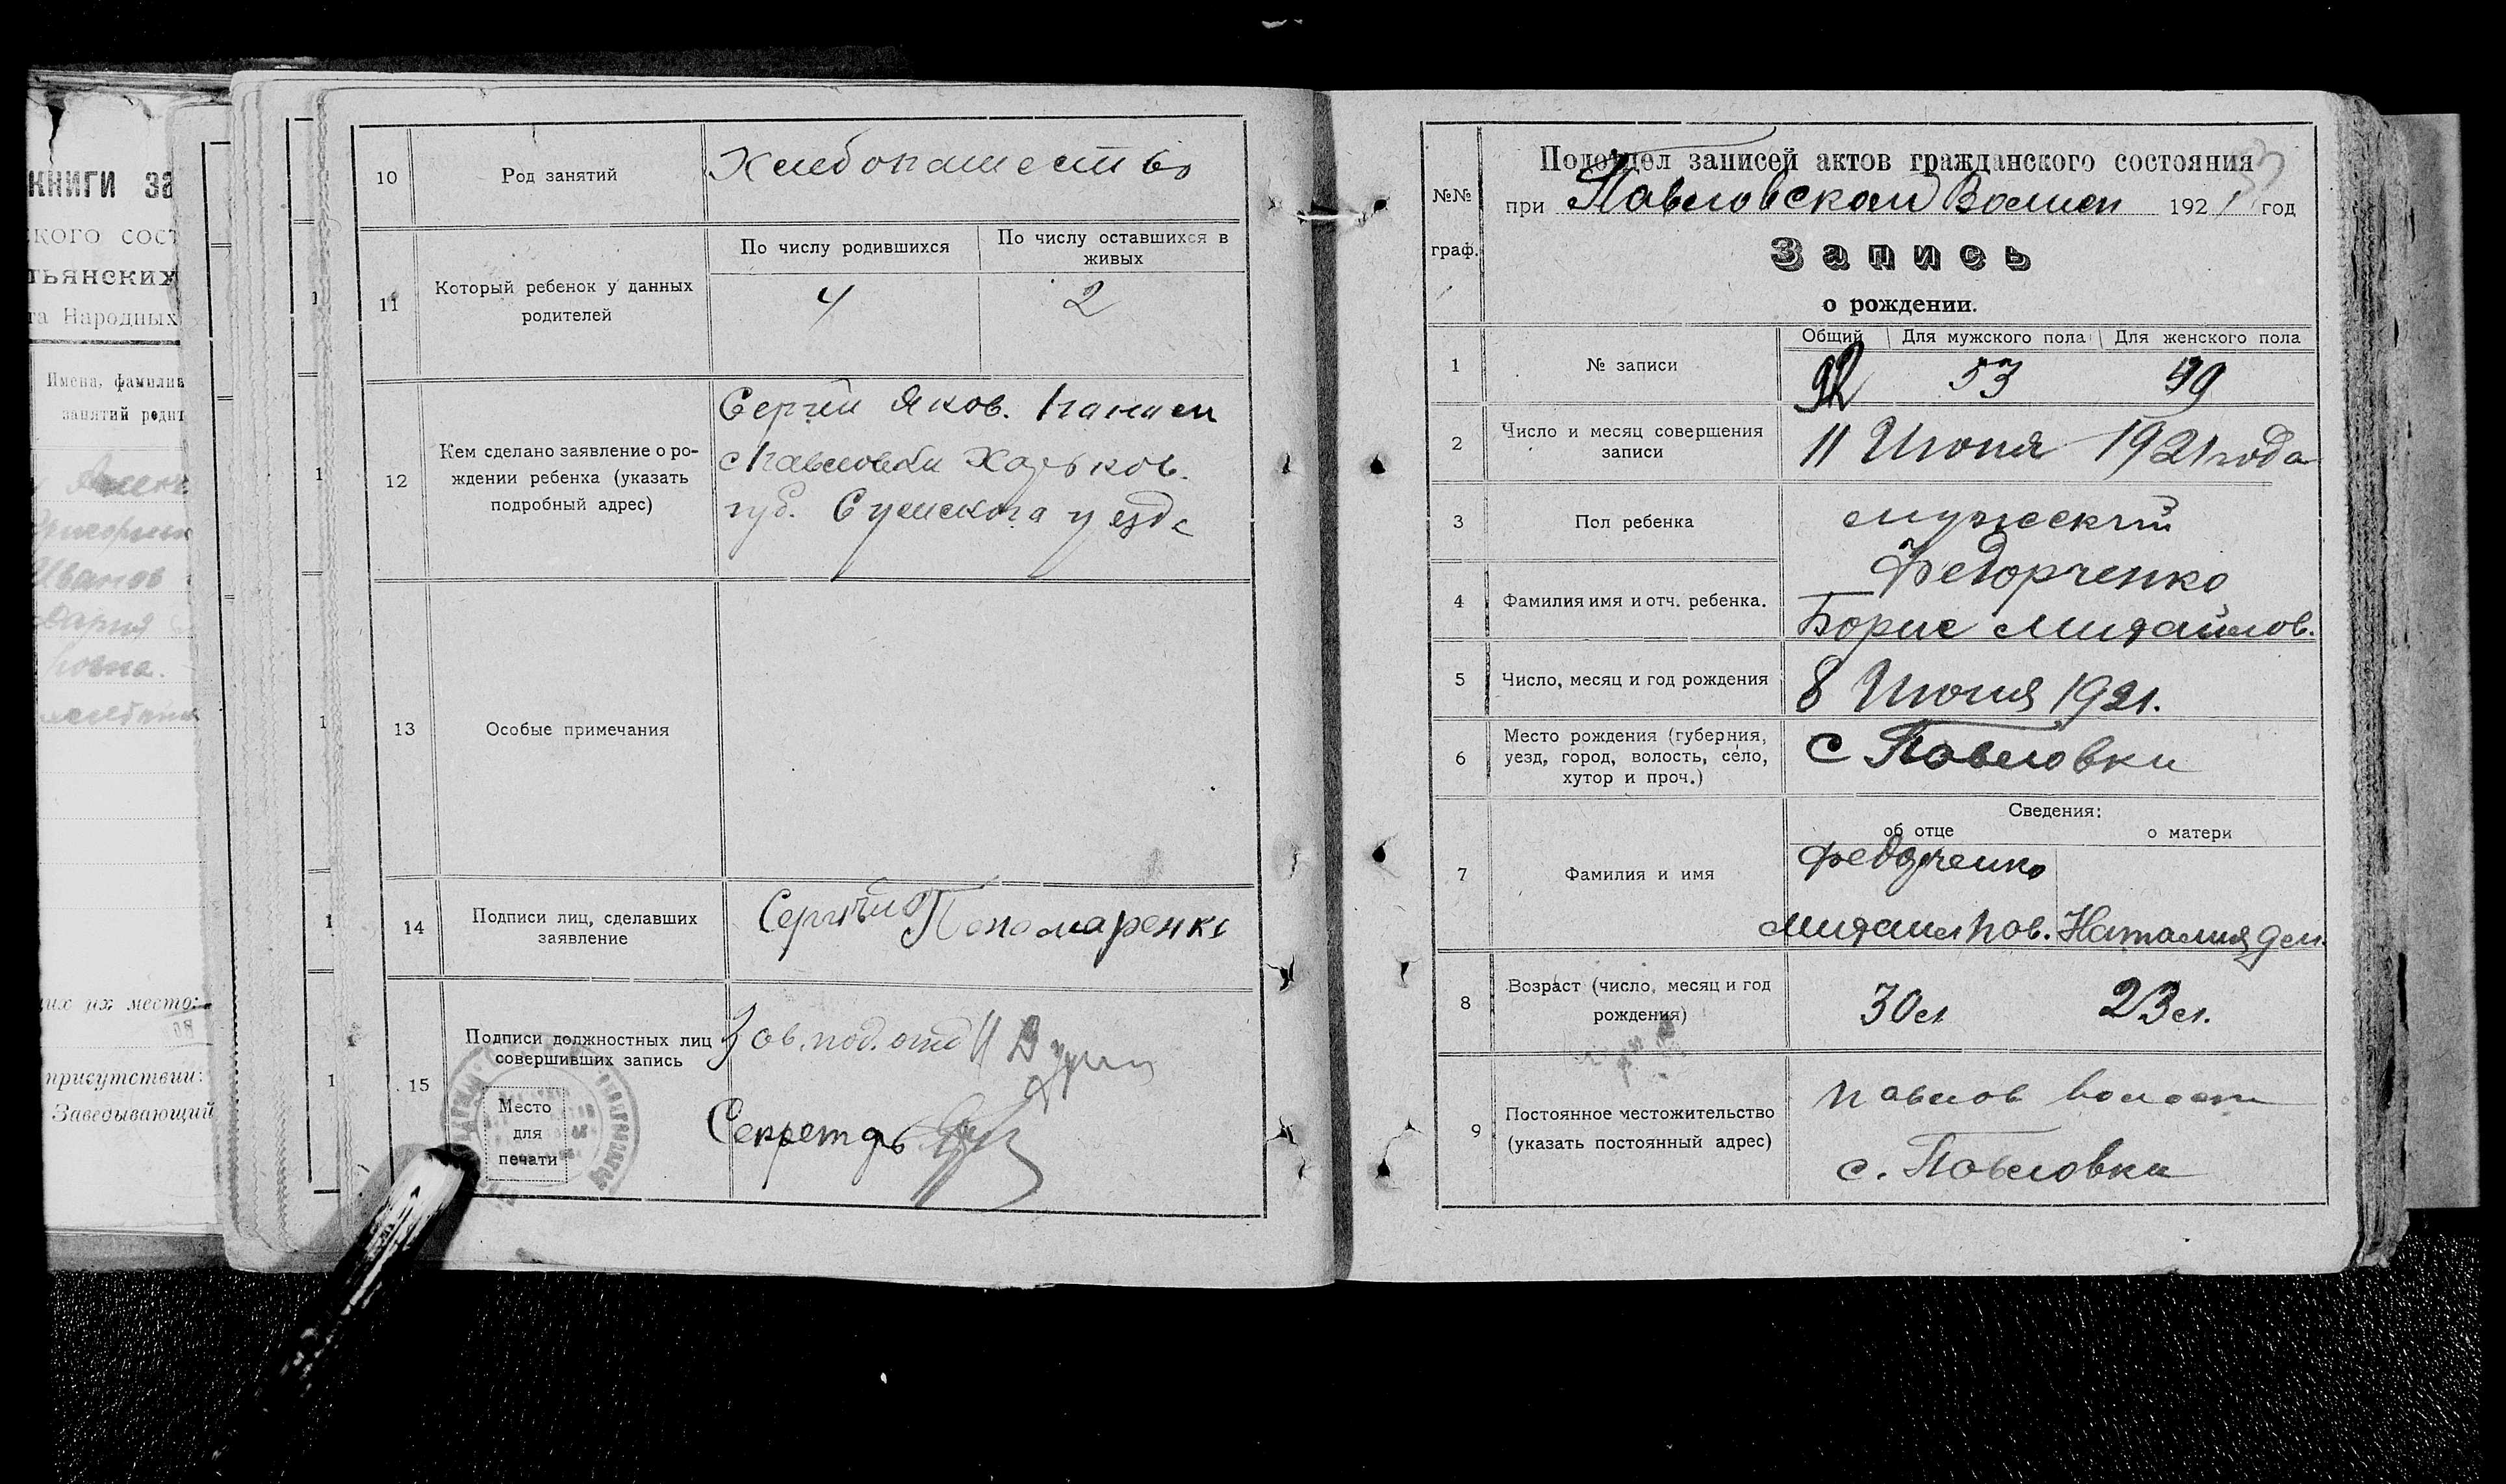 КНИГИ ЗА
кого сост
тьянских
та Народных
Имена, фамилия
занятий родит
Иванов
Дария
их их место:
присутствии:
Заведывающий
10
Род занятий
Хлебопашество
11
Который ребенок у данных
родителей
По числу родившихся
По числу оставшихся в
живых
4
2
12
Кем сделано заявление о ро-
ждении ребенка (указать
подробный адрес)
Сергий Яков.
с Павловки Харьков.
губ. Сумскога уезда
13
Особые примечания
14
Подписи лиц, сделавших
заявление
Сергий Пономаренко
15
Подписи должностных лиц
совершивших запись
Место
для
печати
Зав. под. отд
Секретарь
№№
граф.
Подотдел записей актов гражданского состояния
при Павловском Волисп 1921 год
33
Запись
о рождении.
1
№ записи
Общий Для мужского пола Для женского пола
92 53 39
2
Число и месяц совершения
записи
11 Июня 1921 года
3
Пол ребенка
мужский
4
Фамилия имя и отч. ребенка.
Федорченко
Борис Михайлов.
5
Число, месяц и год рождения
8 Июня 1921.
6
Место рождения (губерния,
уезд, город, волость, село,
хутор и проч.)
С Павловки
7
Фамилия и имя
Сведения:
об отце о матери
Федорченко
Михаил Пав. Наталия Дем.
8
Возраст (число, месяц и год
рождения)
30 л 23 л.
9
Постоянное местожительство
(указать постоянный адрес)
Павлов волости
с. Павловка